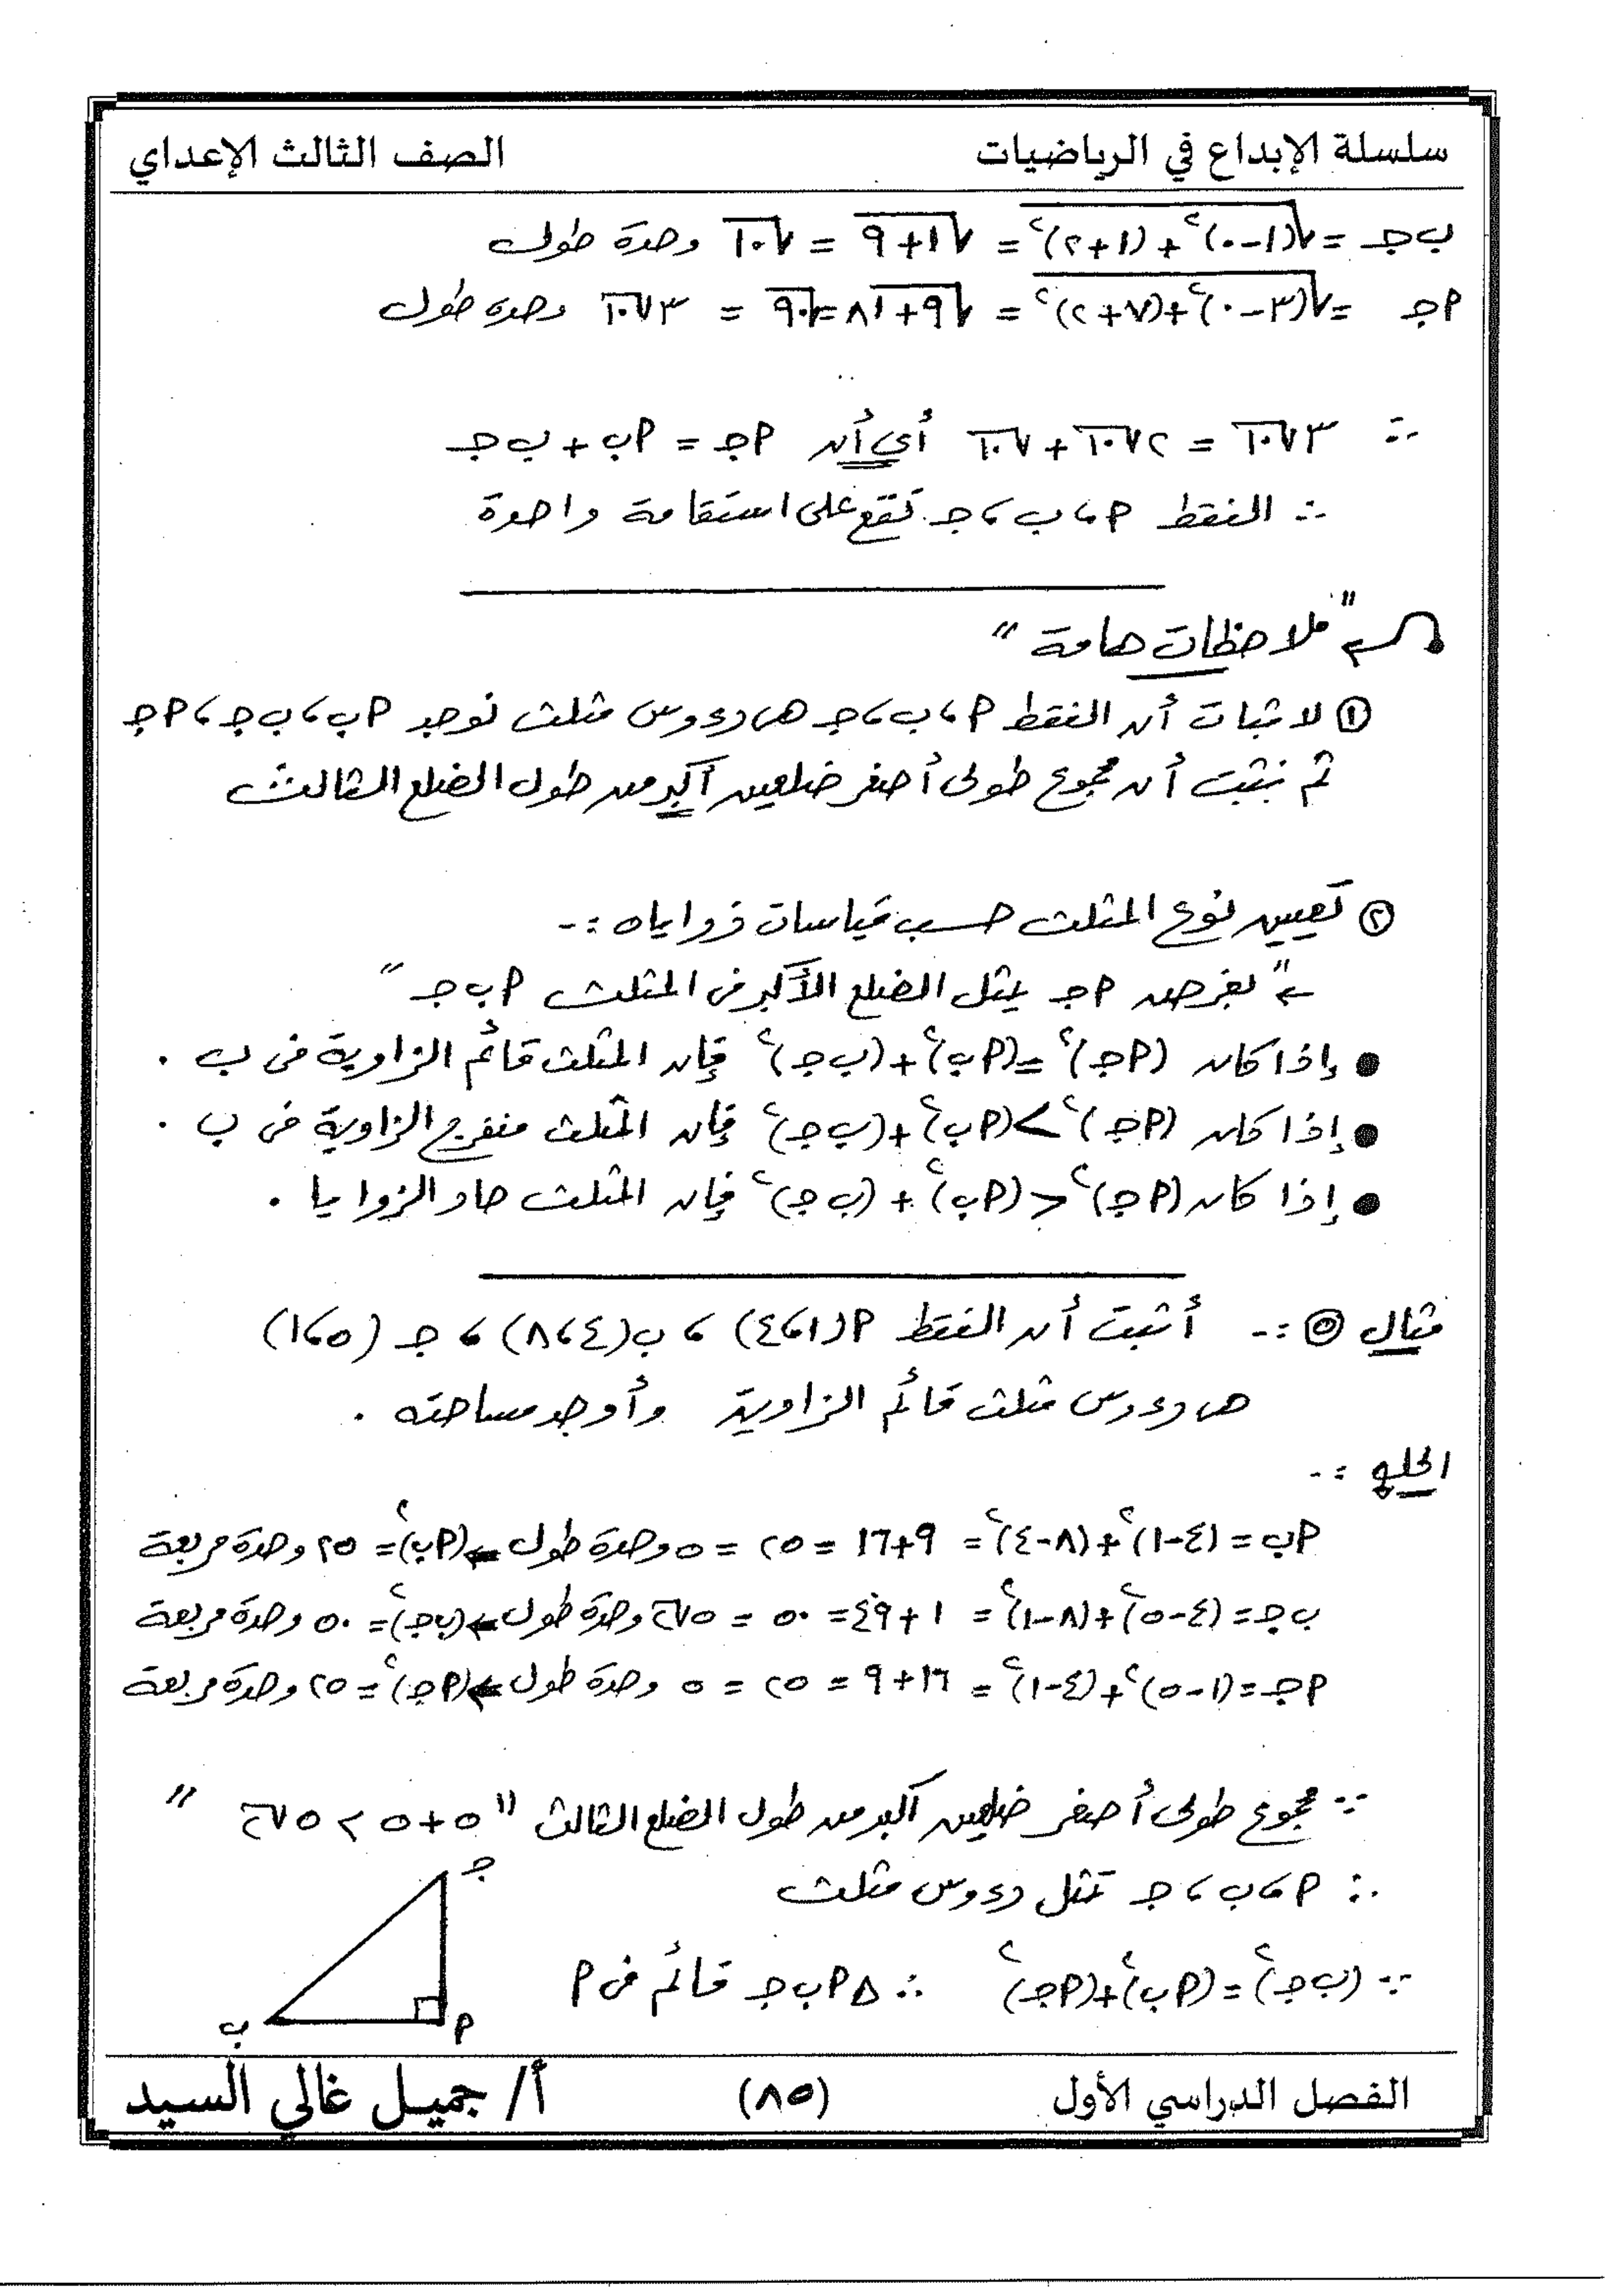 سلسلة الإبداع في الرياضيات
الصف الثالث الإعداي
ب جـ = √(١-٠)٢ + (١+٢)٢ = √١+٩ = √١٠ وحدة طول
أجـ = √(٣-٠)٢ + (٧+٢)٢ = √٩+٨١ = √٩٠ = ٣√١٠ وحدة طول
∵ ٣√١٠ = ٢√١٠ + √١٠ أي أن أجـ = أب + ب جـ
∴ النقط أ ، ب ، جـ تقع على استقامة واحدة
"ملاحظات هامة"
① لاثبات أن النقط أ ، ب ، جـ هى رءوس مثلث نوجد أب ، ب جـ ، أجـ
ثم نثبت أن مجموع طولى أصغر ضلعين أكبر من طول الضلع الثالث
② تعيين نوع المثلث حسب قياسات زواياه :-
← "بفرض أجـ يمثل الضلع الأكبر فى المثلث أب جـ"
● إذا كان (أجـ)٢ = (أب)٢ + (ب جـ)٢ فإن المثلث قائم الزاوية فى ب .
● إذا كان (أجـ)٢ > (أب)٢ + (ب جـ)٢ فإن المثلث منفرج الزاوية فى ب .
● إذا كان (أجـ)٢ < (أب)٢ + (ب جـ)٢ فإن المثلث حاد الزوايا .
مثال ⑤ :- أثبت أن النقط أ(١،٤) ، ب(٤،٨) ، جـ (٥،١)
هى رءوس مثلث قائم الزاوية وأوجد مساحته .
الحل :-
أب = (٤-١)٢ + (٨-٤)٢ = ٩+١٦ = ٢٥ = ٥ وحدة طول ← (أب)٢ = ٢٥ وحدة مربعة
ب جـ = (٤-٥)٢ + (٨-١)٢ = ١+٤٩ = ٥٠ = ٥√٢ وحدة طول ← (ب جـ)٢ = ٥٠ وحدة مربعة
أجـ = (١-٥)٢ + (٤-١)٢ = ١٦+٩ = ٢٥ = ٥ وحدة طول ← (أجـ)٢ = ٢٥ وحدة مربعة
∵ مجموع طولى أصغر ضلعين أكبر من طول الضلع الثالث "٥+٥ > ٥√٢"
∴ أ ، ب ، جـ تمثل رءوس مثلث
∵ (ب جـ)٢ = (أب)٢ + (أجـ)٢ ∴ Δ أب جـ قائم فى أ
جـ
ب
أ
الفصل الدراسي الأول
(٨٥)
أ/ جميل غالي السيد